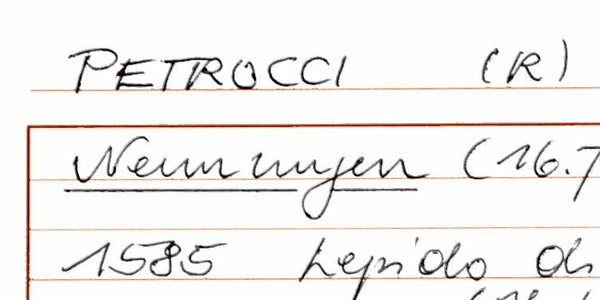 PETROCCI (R)
Nennungen (16.7
1585 Lepido di